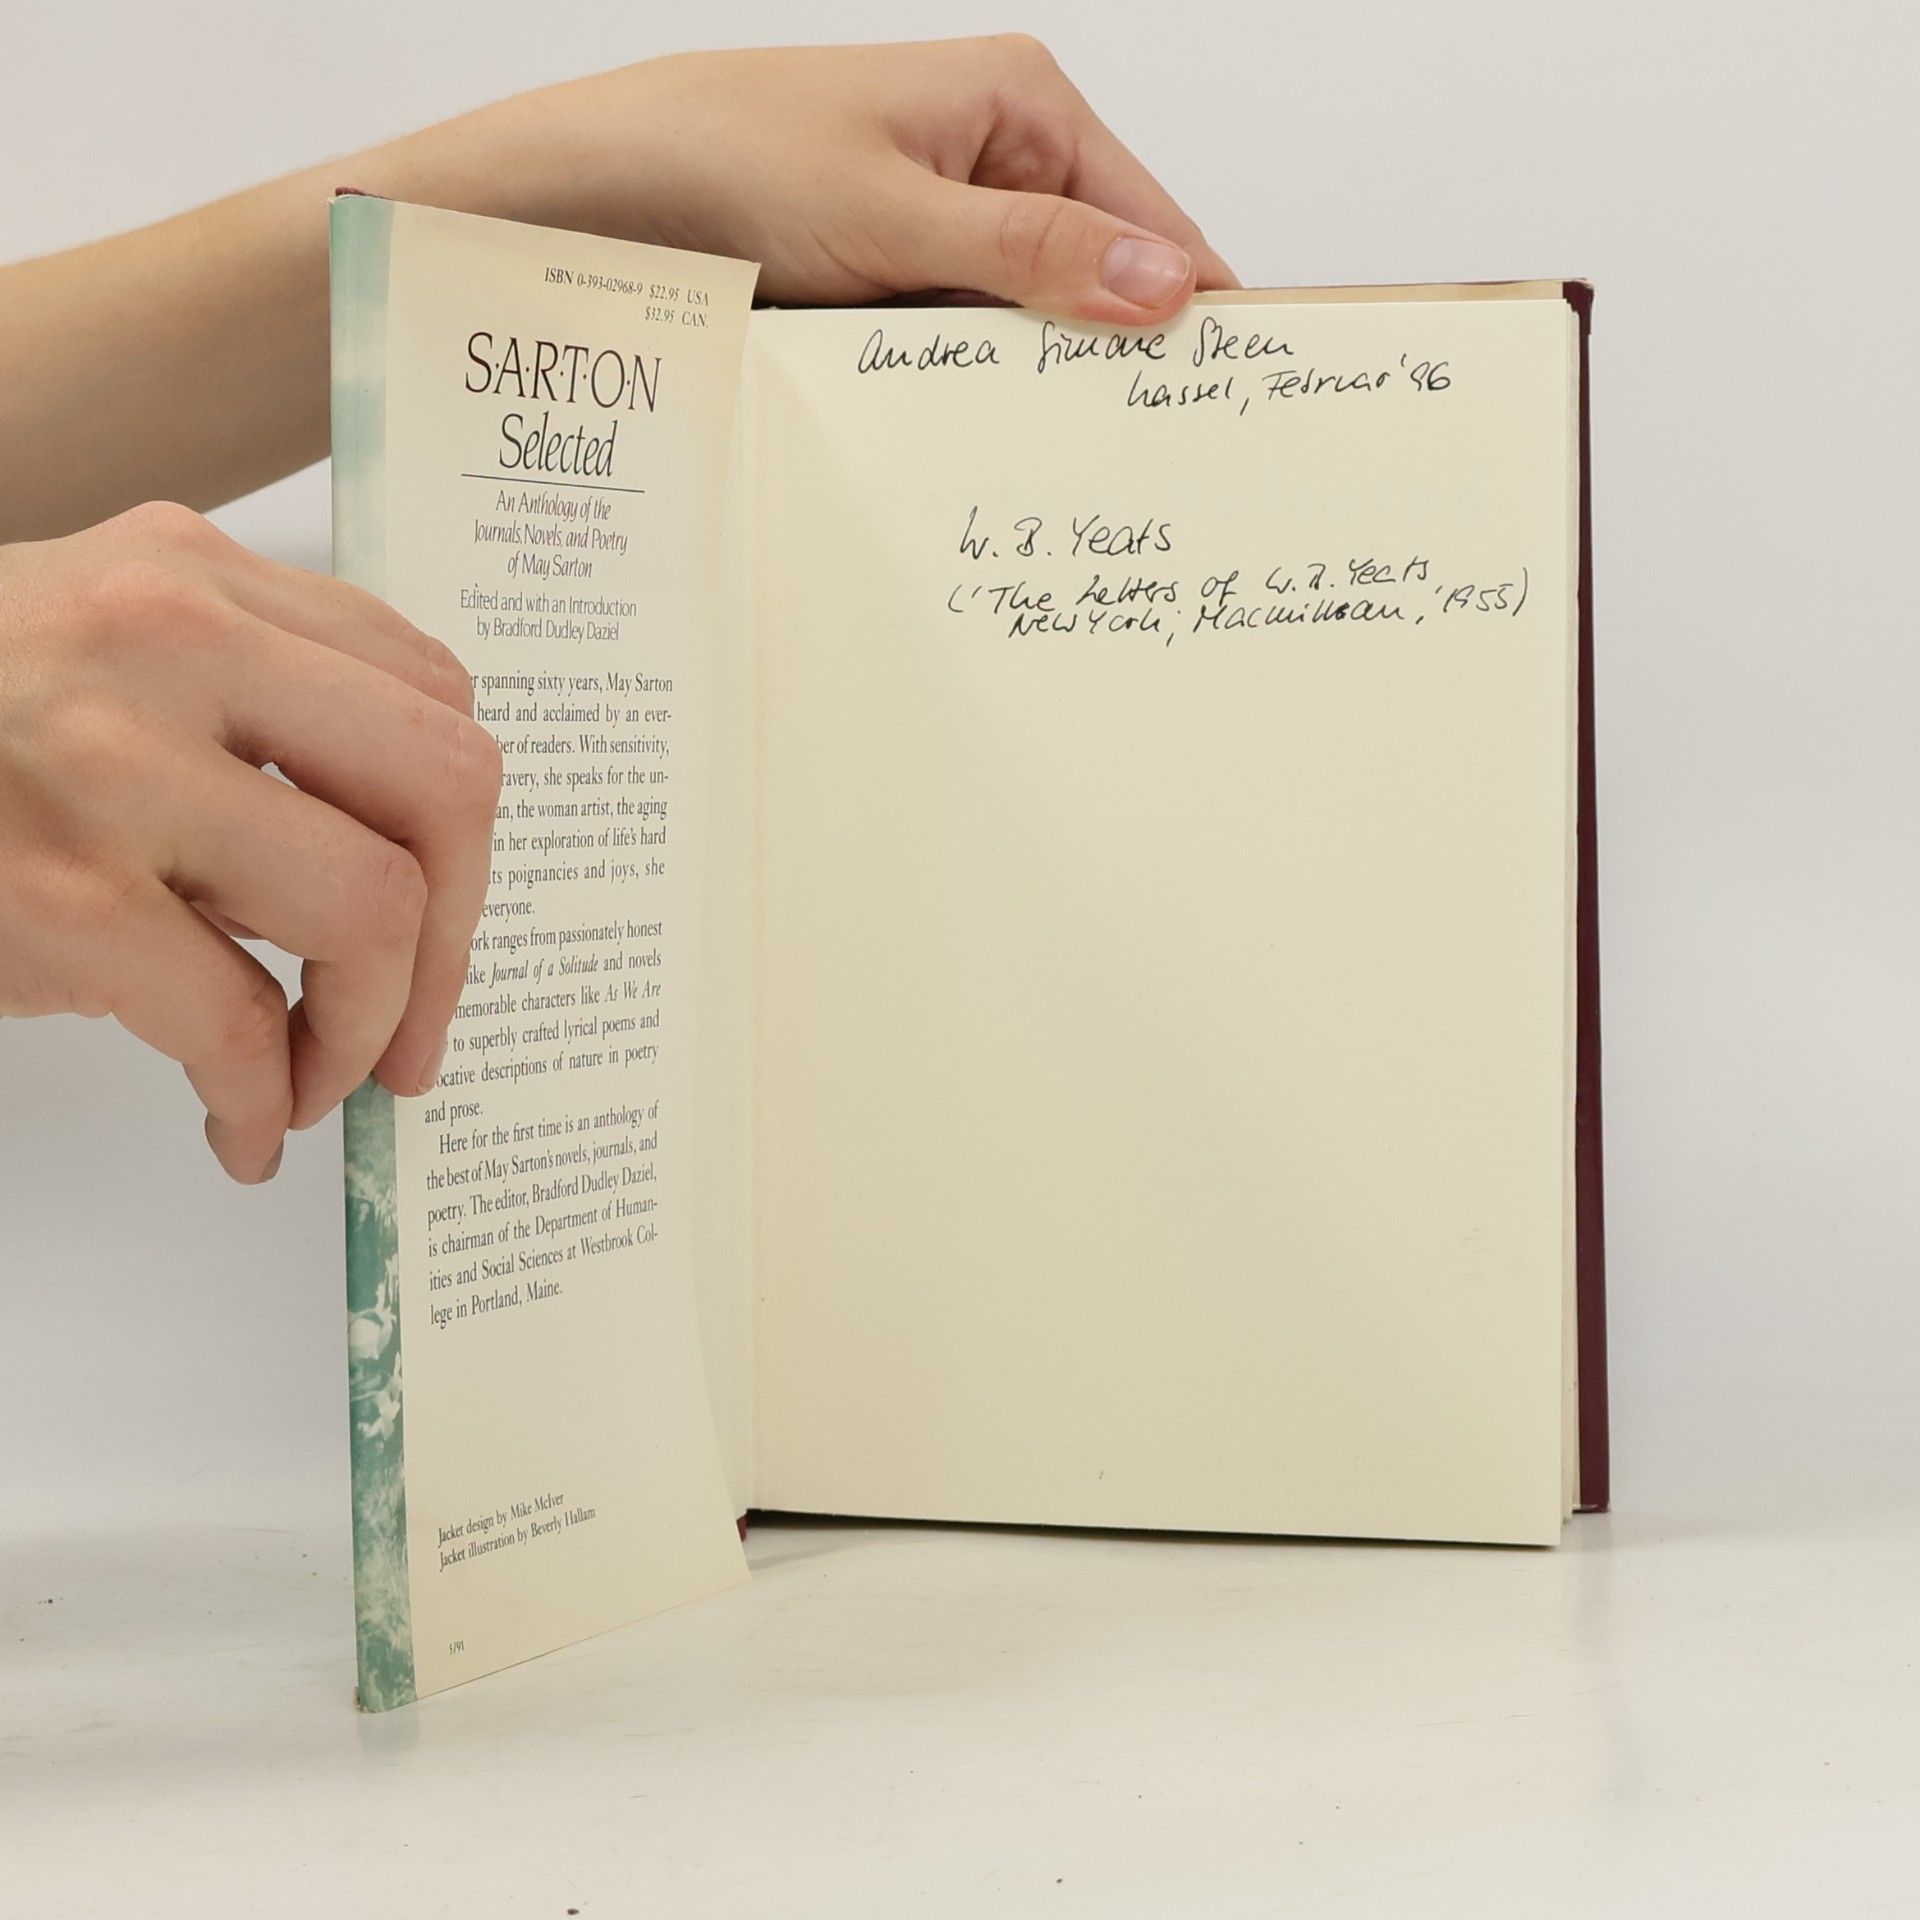 ISBN 0-393-02968-9 $22.95 USA
$32.95 CAN.
S·A·R·T·O·N
Selected
An Anthology of the
Journals, Novels, and Poetry
of May Sarton
Edited and with an Introduction
by Bradford Dudley Daziel
spanning sixty years, May Sarton
heard and acclaimed by an ever-
of readers. With sensitivity,
she speaks for the un-
the woman artist, the aging
in her exploration of life's hard
poignancies and joys, she
everyone.
ranges from passionately honest
like Journal of a Solitude and novels
memorable characters like As We Are
to superbly crafted lyrical poems and
descriptions of nature in poetry
and prose.
Here for the first time is an anthology of
the best of May Sarton's novels, journals, and
poetry. The editor, Bradford Dudley Daziel,
is chairman of the Department of Human-
ities and Social Sciences at Westbrook Col-
lege in Portland, Maine.
Jacket design by Mike McIver
Jacket illustration by Beverly Hallam
5/91
Andrea Simone Steen
Kassel, Februar '96
W. B. Yeats
('The Letters of W. B. Yeats,
New York; Macmillan, '1955)